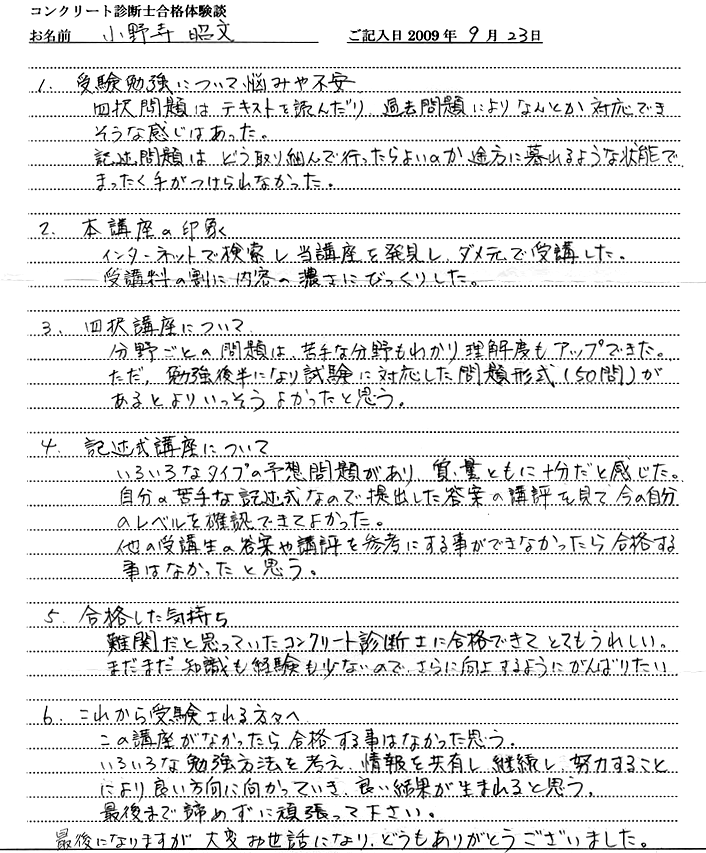 コンクリート診断士合格体験談
お名前 小野寺 昭文 ご記入日 2009年 9月 23日
1. 受験勉強について、悩みや不安
四択問題は テキストを読んだり、過去問題によりなんとか対応でき
そうな感じはあった。
記述問題は、どう取り組んで行ったらよいのか、途方に暮れるような状態で
まったく手がつけられなかった。
2. 本講座の印象
インターネットで検索し、当講座を発見し、ダメ元で受講した。
受講料の割に内容の濃さにびっくりした。
3. 四択講座について
分野ごとの問題は、苦手な分野もわかり理解度もアップできた。
ただ、勉強後半になり試験に対応した問題形式(50問)が
あるとよりいっそうよかったと思う。
4. 記述式講座について
いろいろなタイプの予想問題があり、質・量ともに十分だと感じた。
自分の苦手な記述式なので提出した答案の講評を見て今の自分
のレベルを確認できてよかった。
他の受講生の答案や講評を参考にする事ができなかったら合格する
事はなかったと思う。
5. 合格した気持ち
難関だと思っていたコンクリート診断士に合格できてとてもうれしい。
まだまだ知識も経験も少ないので、さらに向上するようにがんばりたい
6. これから受験される方々へ
この講座がなかったら合格する事はなかった思う。
いろいろな勉強方法を考え、情報を共有し、継続し、努力すること
により良い方向に向かっていき、良い結果が生まれると思う。
最後まで諦めずに頑張って下さい。
最後になりますが 大変お世話になり、どうもありがとうございました。